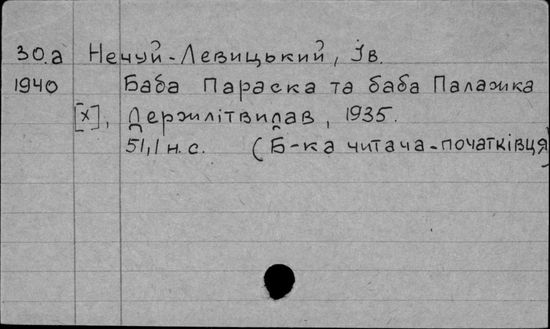 30.а Нечуй-Левицький, Ів.
1940 Баба Параска та баба Палажка
[х], Держлітвидав, 1935.
51,1 н.с. (Б-ка читача-початківця)